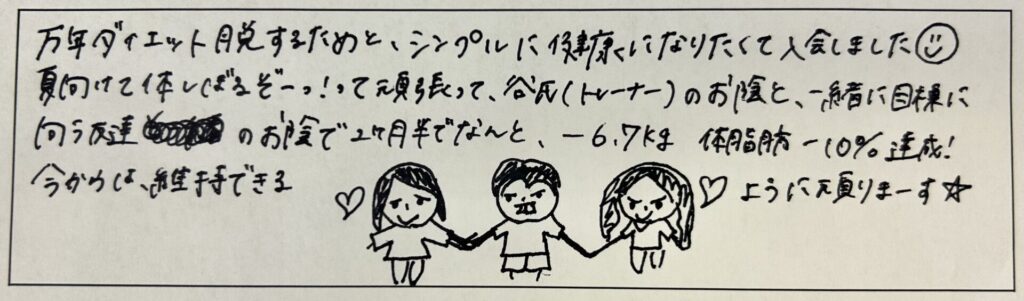 万年ダイエット脱するためと、シンプルに健康になりたくて入会しました☺
夏向けて体しぼるぞーっ!って頑張って、谷氏(トレーナー)のお陰と、一緒に目標に
向う友達 のお陰で2ヶ月半でなんと、-6.7kg 体脂肪-10%達成!
今からは、維持できる ♡ ♡ ように頑りまーす☆